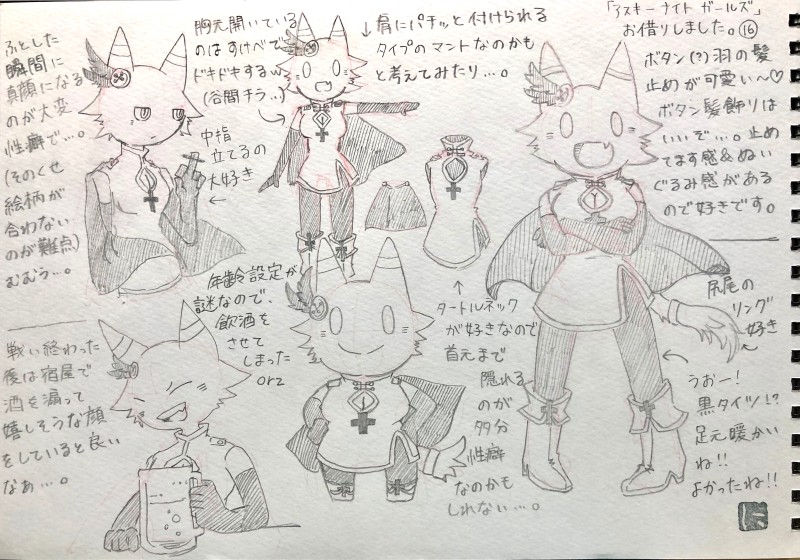 「アスキーナイト ガールズ」
お借りしました。⑯
ボタン(?)羽の髪
止めが可愛い〜♡
ボタン髪飾りは
いいぞ…。止め
てます感&ぬい
ぐるみ感がある
ので好きです。
↓肩にパチッと付けられる
タイプのマントなのかも
と考えてみたり…。
胸元開いている
のはすけべで
ドキドキするw
(谷間チラ…)
ふとした
瞬間に
真顔になる
のが大変
性癖で…。
(そのくせ
絵柄が
合わない
のが難点)
むむう…。
中指
立てるの
大好き
尻尾の
リング
好き
うおー!
黒タイツ!?
足元暖かい
ね!!
よかったね!!
↑
タートルネック
が好きなので
首元まで
隠れる
のが
多分
性癖
なのかも
しれない…。
年齢設定が
謎なので、
飲酒を
させて
しまった
orz
戦い終わった
後は宿屋で
酒を漏って
嬉しそうな顔
をしていると良い
なぁ…。